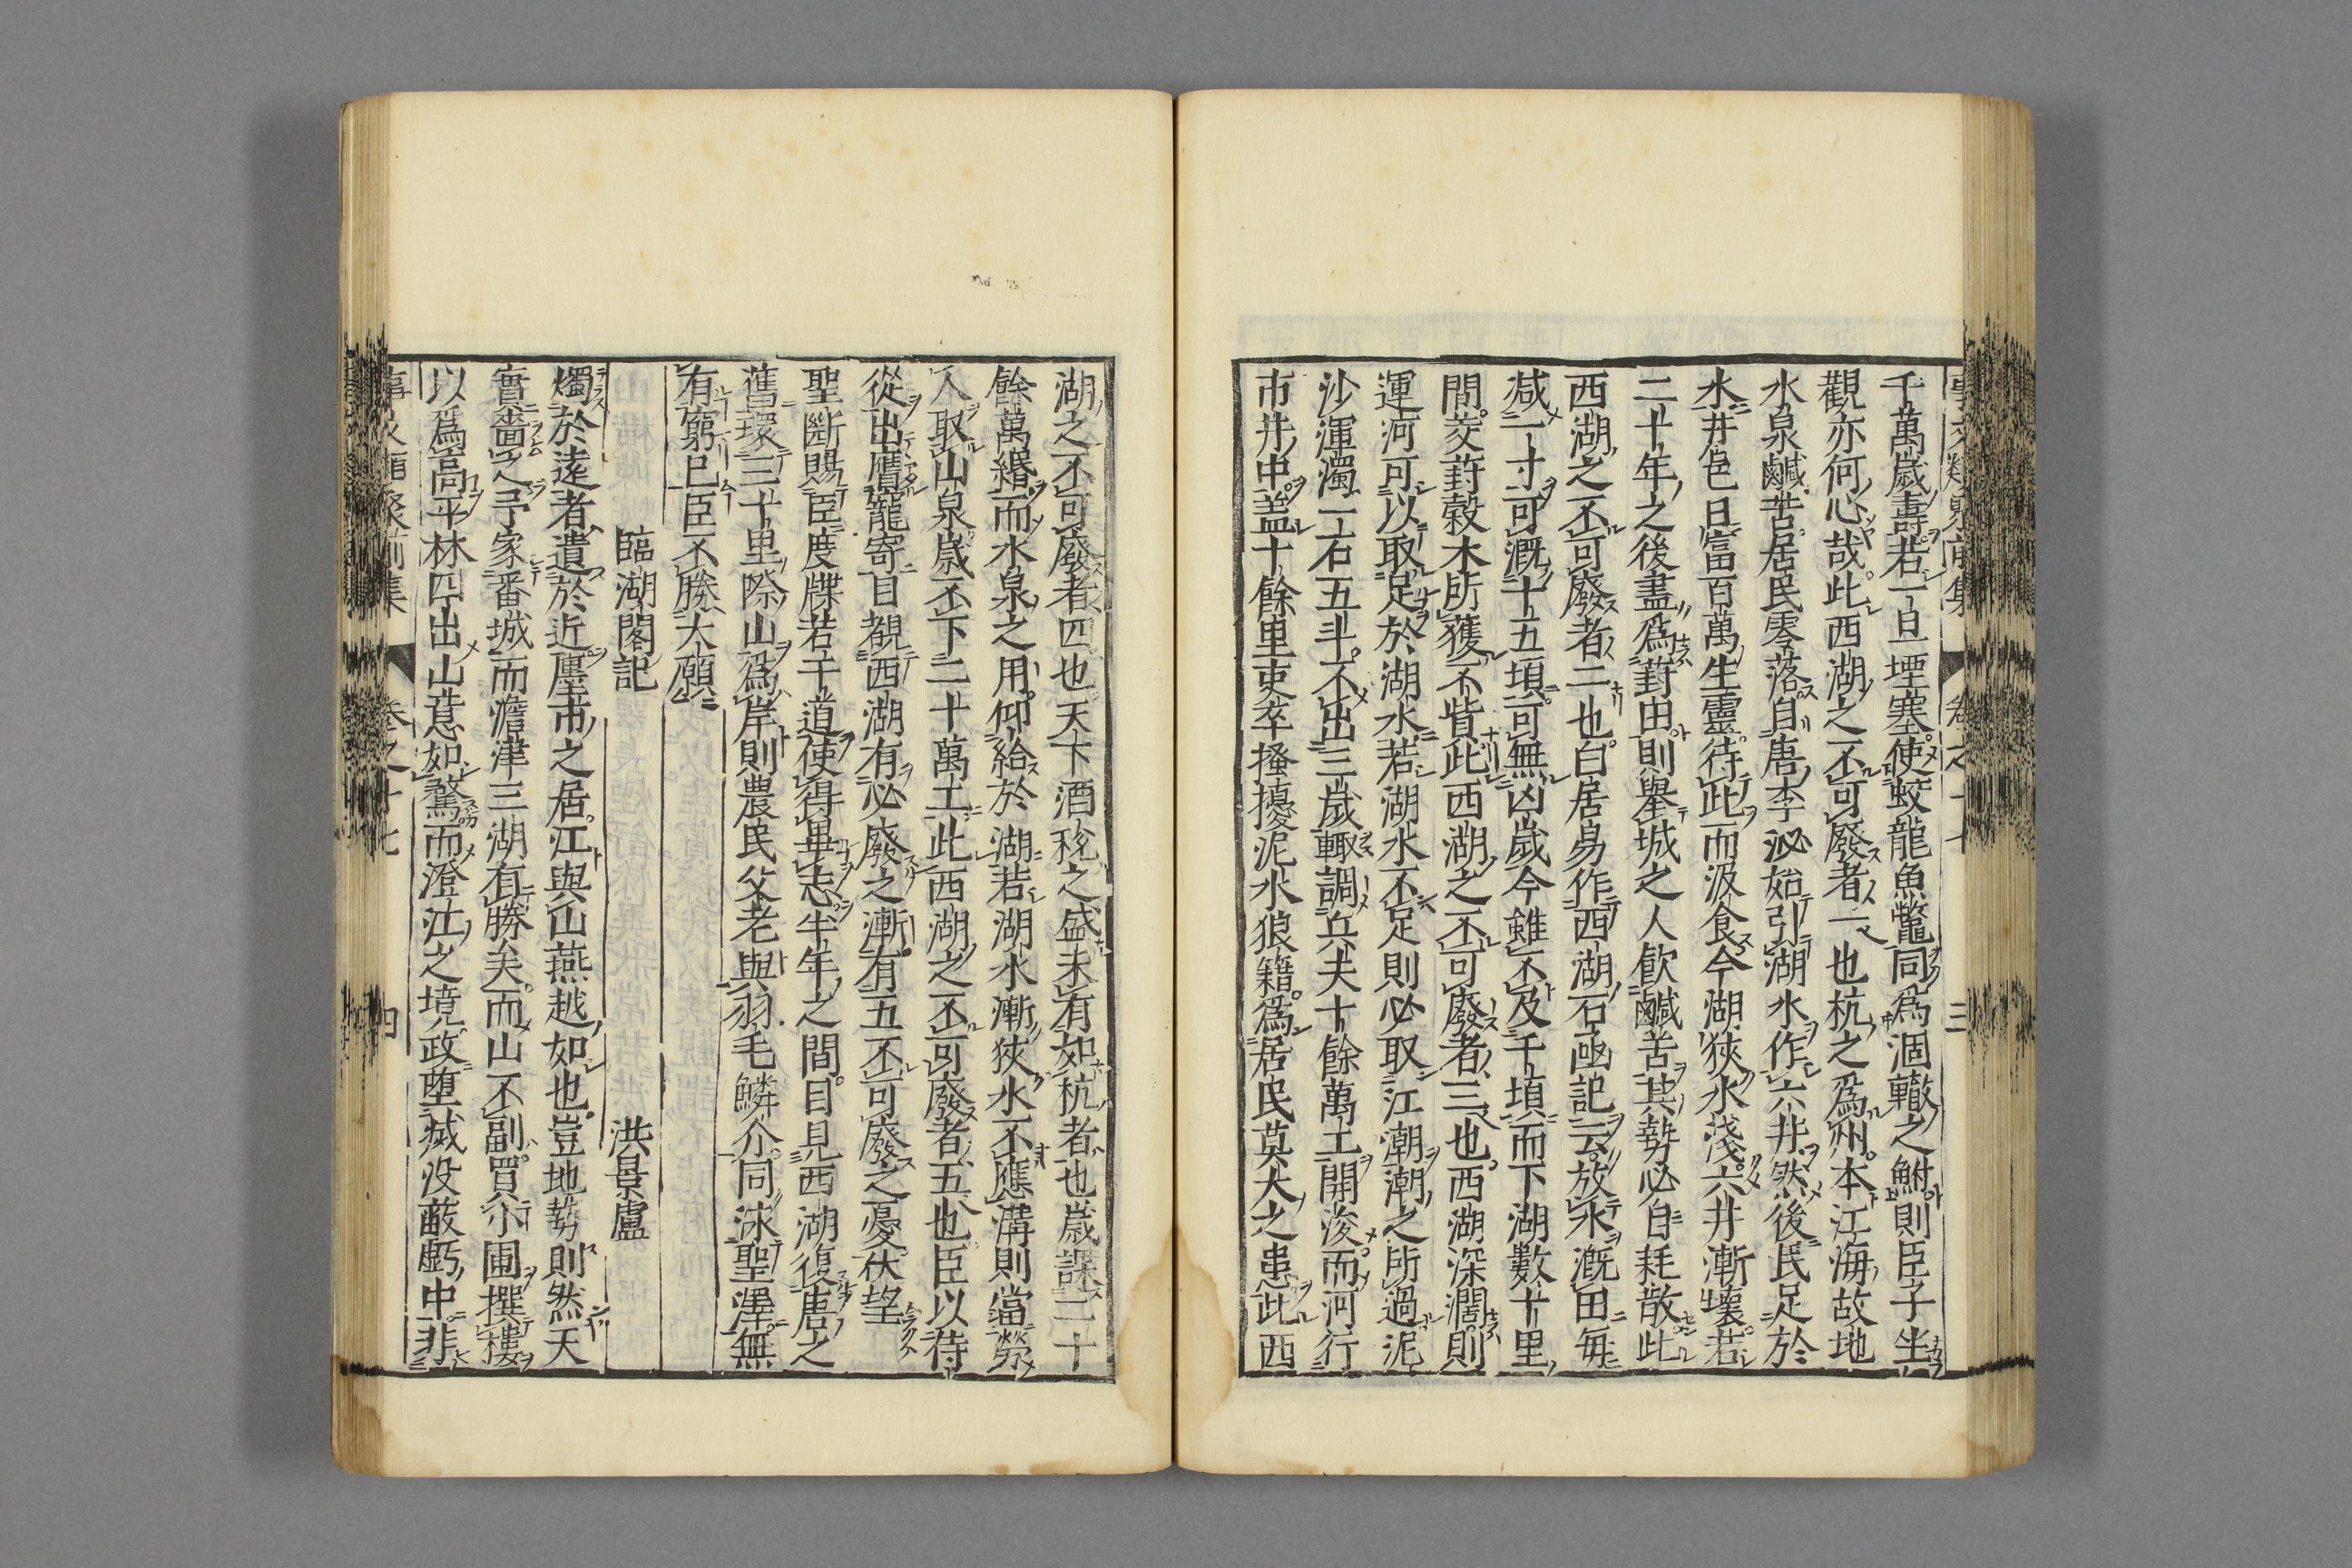 千萬歲壽若一旦堙塞使蛟龍魚鼈同爲涸轍之鮒則臣子坐
觀亦何心哉此西湖之不可廢者一也杭之爲州本江海故地
水泉鹹苦居民零落自唐李泌始引湖水作六井然後民足於
水井邑日富百萬生靈待此而汲食今湖狹水淺六井漸壞若
二十年之後盡爲葑田則舉城之人飮鹹苦其勢必自耗散此
西湖之不可廢者二也白居易作西湖石函記云放水漑田每
减一寸可漑十五頃可無凶歲今雖不及千頃而下湖數十里
間茭葑穀木所獲不貲此西湖之不可廢者三也西湖深濶則
運河可以取足於湖水若湖水不足則必取江潮潮之所過泥
沙渾濁一石五斗不出三歲輙調兵夫十餘萬工開浚而河行
市井中盖十餘里吏卒搔擾泥水狼籍爲居民莫大之患此西
湖之不可廢者四也天下酒稅之盛未有如杭者也歲課二十
餘萬緡而水泉之用仰給於湖若湖水漸狹水不應溝則當勞
人取山泉歲不下二十萬工此西湖之不可廢者五也臣以待
從出膺寵寄目覩西湖有必廢之漸有五不可廢之憂伏望
聖斷賜臣度牒若干道使得畢志半年之間目見西湖復唐之
舊環三十里際山爲岸則農民父老與羽毛鱗介同泳聖澤無
有窮已臣不勝大願
臨湖閣記 洪景盧
燭於遠者遺於近廛市之居江與山燕越如也豈地勢則然天
實嗇之予家番城而澹津三湖有勝矣而山不副買小圃撰樓
以爲高平林四出山意如騖而澄江之境政墮㓕没蔽虧中非
事文類聚前集 卷之十七 四